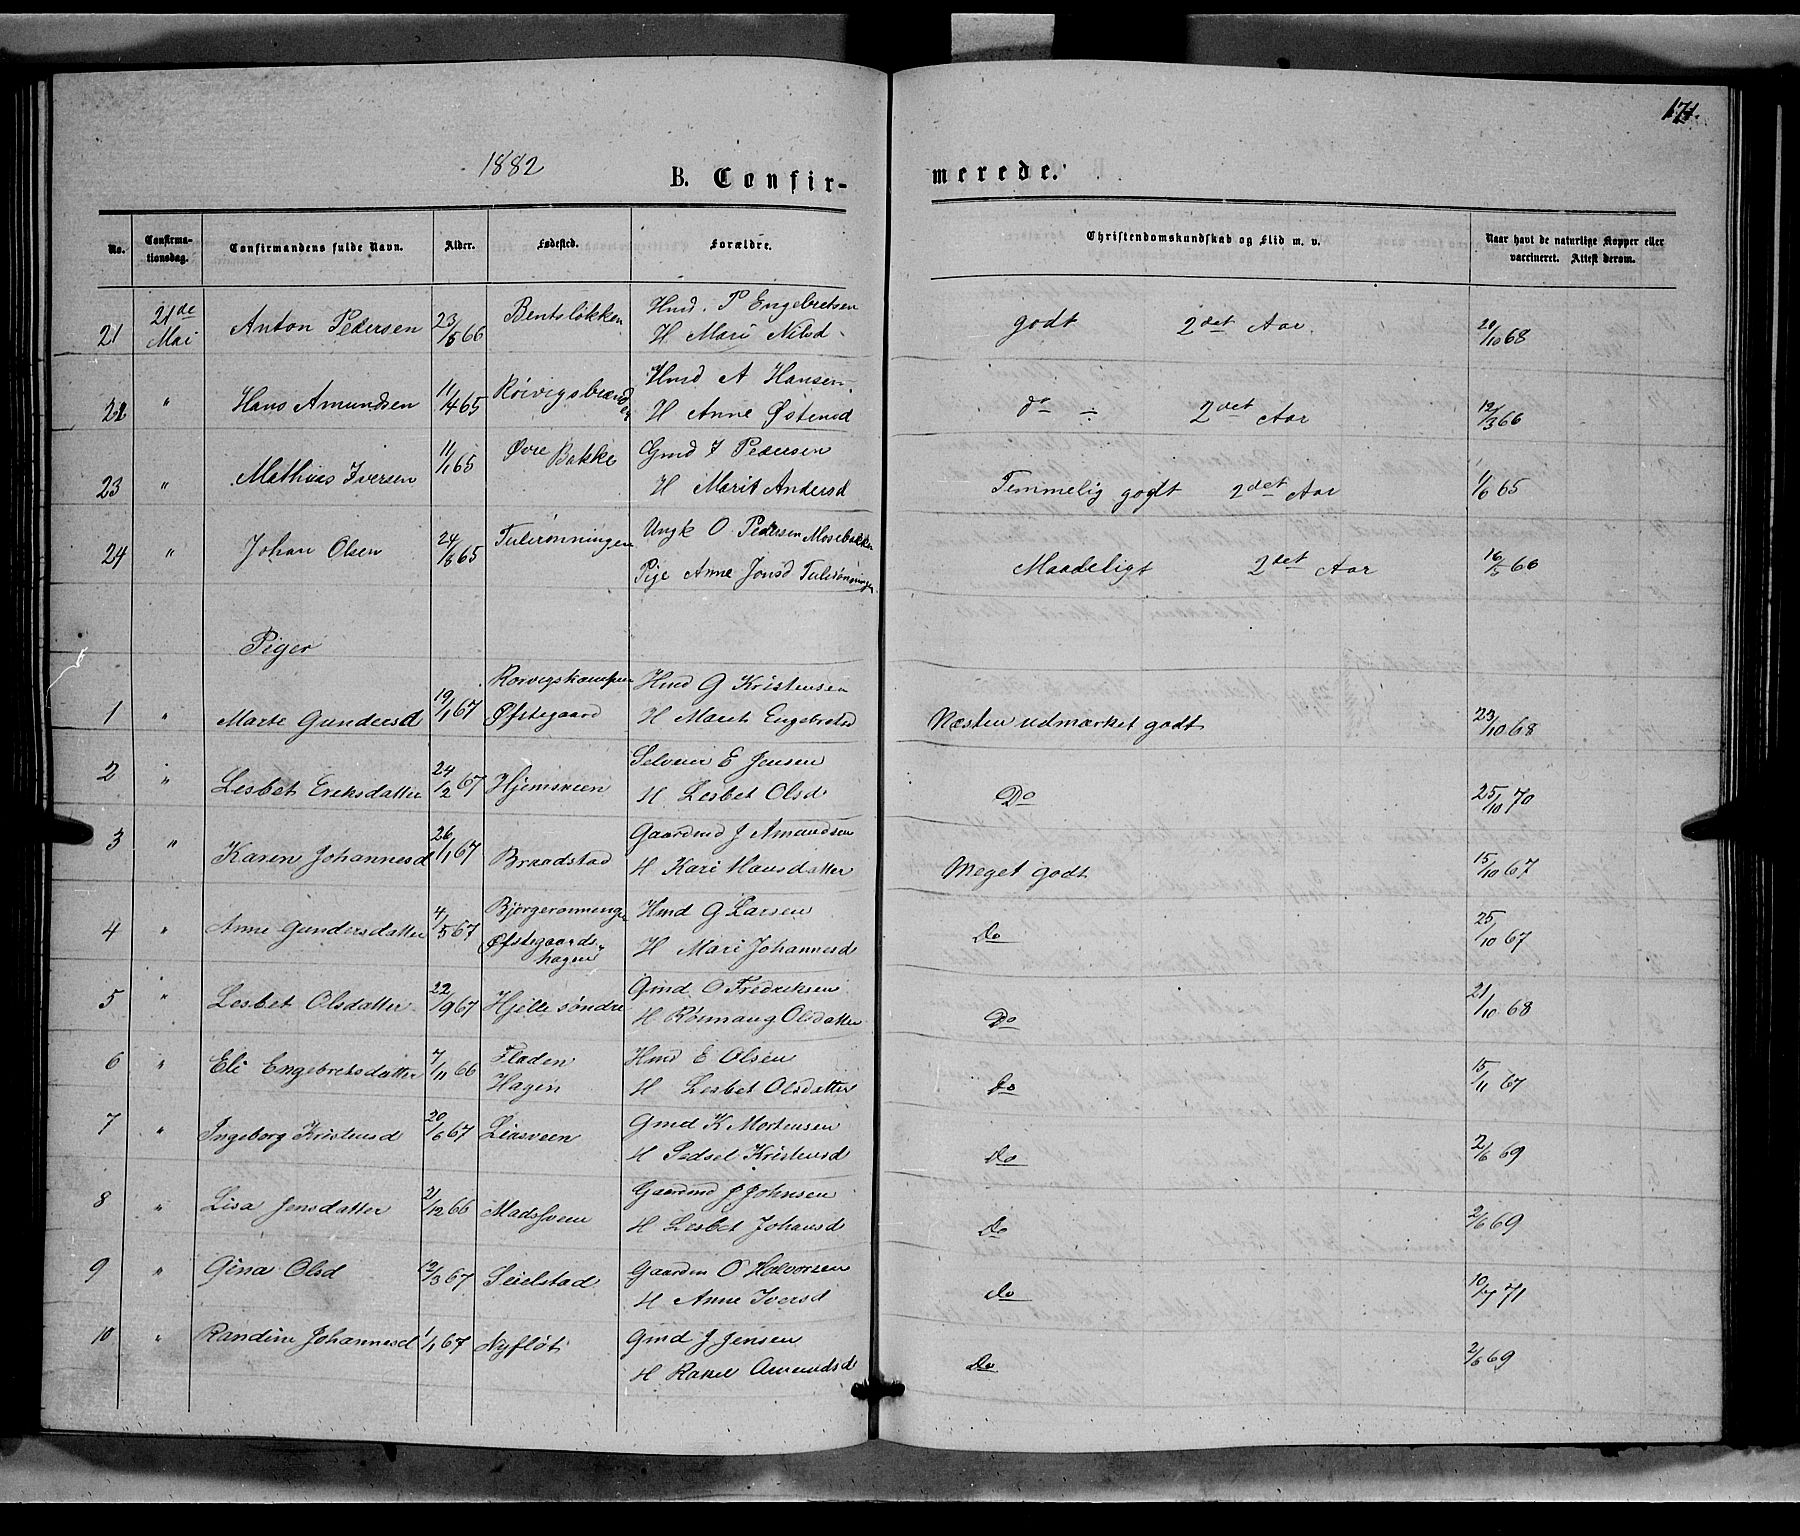 171.
1882
B. Confir-
merede.
No.
Confirma-
tionsdag.
Confirmandens fulde Navn.
Alder.
Fødested.
Forældre.
Christendomskundskab og Flid m. v.
Naar havt de naturlige Kopper eller
vaccineret. Attest derom.
21 21de Mai Anton Pedersen 23/5 66 Bentsløkken Hmd. P Engebretsen
H Mari Nilsd
godt 2det Aar. 20/10 68
22 " Hans Amundsen 11/4 65 Roivigsbrænden Hmd A Hansen
H Anne Østensd
do ÷ 2det Aar 12/3 66
23 " Mathias Iversen 11/1 65 Øvre Bakke Gmd I Pedersen
H Marit Andersd
Temmelig godt 2det Aar 1/6 65
24 " Johan Olsen 24/8 65 Tulirønningen Ungk O. Pedersen Mosebakken
Pige Anne Jonsd Tulirønningen
Maadeligt 2det Aar 16/5 66
Piger
Rorvigskampen
1 " Marte Gundersd 19/1 67 Øfstegaard Hmd G Kristensen
H Marit Engebretsd
Næsten udmærket godt 23/10 68
2 " Lisbet Eriksdatter 24/2 67 Hjemsveen Selveier E Jensen
H Lisbet Olsd
Do 25/10 70
3 " Karen Johannesd 26/1 67 Braadstad Gaardmd J Amundsen
H Kari Hansdatter
Meget godt 15/10 67
4 " Anne Gundersdatter 4/5 67 Bjørgerønningen Hmd G Larsen
Øfstegaards-
hagen H Mari Johannesd
Do 25/10 67
5 " Lisbet Olsdatter 22/9 67 Hjelle søndre Gmd O Fredriksen
H Rønnaug Olsdatter
Do 21/10 68
6 " Eli Engebretsdatter 7/11 66 Fladen Hmd E Olsen
Hagen H Lisbet Olsdatter
Do 15/11 67
7 " Ingeborg Kristensd 20/6 67 Liasveen Gmd K Mortensen
H Sedsel Kristensd
Do 2/6 69
8 " Lisa Jensdatter 21/12 66 Madssveen Gaardmd J Johnsen
H Lisbet Johansd
Do 2/6 69
9 " Gina Olsd 12/3 67 Seielstad Gaardm O Halvorsen
H Anne Iversd
Do 10/7 71
10 " Randine Johannesd 1/1 67 Nyfløt Gmd J Jensen
H Rakel Amundsd
Do 2/6 69